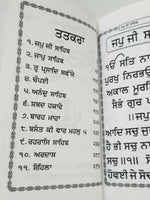 ਤਤਕਰਾ
੧. ਜਪੁ ਜੀ ਸਾਹਿਬ
੨. ਜਾਪੁ ਸਾਹਿਬ
੩. ਤ੍ਵ ਪ੍ਰਸਾਦਿ ਸਵੱਯੇ
੪. ਚੌਪਈ
੫. ਅਨੰਦੁ ਸਾਹਿਬ
੬. ਸ਼ਬਦ ਹਜ਼ਾਰੇ
੭. ਬਾਰਹ ਮਾਹਾ
੮. ਬਸੰਤ ਕੀ ਵਾਰ ਮਹਲੁ ੫
੯. ਰਹਰਾਸਿ ਸਾਹਿਬ
੧੦. ਅਰਦਾਸ
੧੧. ਸੋਹਿਲਾ
ਜਪੁ ਜੀ ਸਾ
ੴ ਸਤਿ ਨਾਮੁ
ਪੁਰਖੁ ਨਿਰਭਉ
ਅਕਾਲ ਮੂਰਤਿ
ਸੈਭੰ ਗੁਰ ਪ੍ਰ
ਆਦਿ ਸਚੁ ਜੁਗਾਦਿ
ਸਚੁ ਨਾਨਕ
ਹੋਵਈ ਜੇ